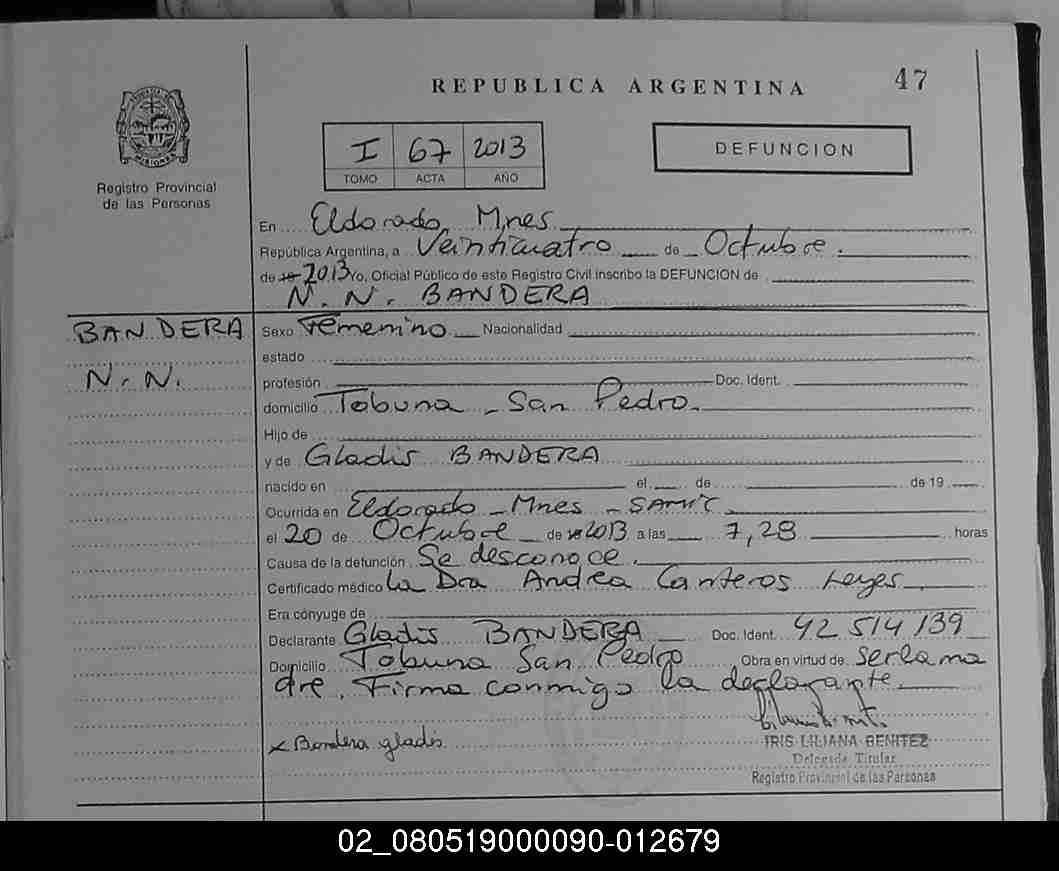 REPUBLICA ARGENTINA
47
MISIONES
Registro Provincial
de las Personas
I 67 2013
TOMO ACTA AÑO
DEFUNCION
En Eldorado, Mnes
República Argentina, a Veinticuatro de Octubre.
de 19 2013 Yo, Oficial Público de este Registro Civil inscribo la DEFUNCION de
N. N. BANDERA
BANDERA
N. N.
Sexo Femenino Nacionalidad
estado
profesión Doc. Ident.
domicilio Tobuna - San Pedro.
Hijo de
y de Gladis BANDERA
nacido en el de de 19
Ocurrida en Eldorado - Mnes - SAMIC
el 20 de Octubre de 19 2013 a las 7,28 horas
Causa de la defunción Se desconoce.
Certificado médico La Dra Andrea Canteros Leyes
Era cónyuge de
Declarante Gladis BANDERA Doc. Ident. 42 514 139
Domicilio Tobuna San Pedro Obra en virtud de ser la ma
dre. Firma conmigo la declarante.
x Bandera gladis
IRIS LILIANA BENITEZ
Delegada Titular
Registro Provincial de las Personas
02_080519000090-012679